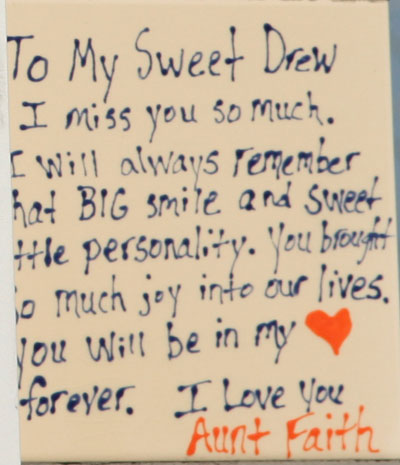 To My Sweet Drew
I miss you so much.
I will always remember
hat BIG smile and sweet
ttle personality. You brought
so much joy into our lives.
you will be in my
forever. I Love You
Aunt Faith